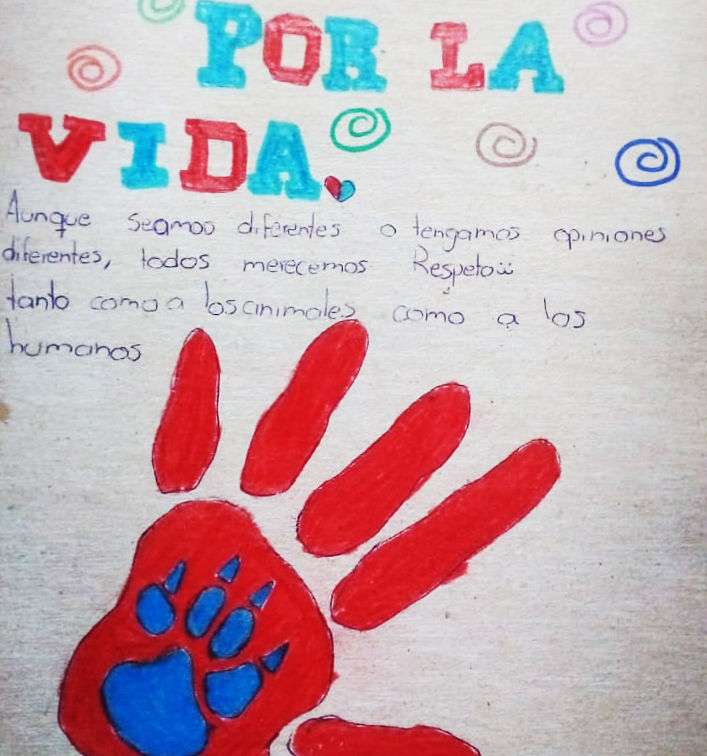 POR LA
VIDA.
Aunque seamos diferentes o tengamos opiniones
diferentes, todos merecemos Respeto
tanto como a los animales como a los
humanos